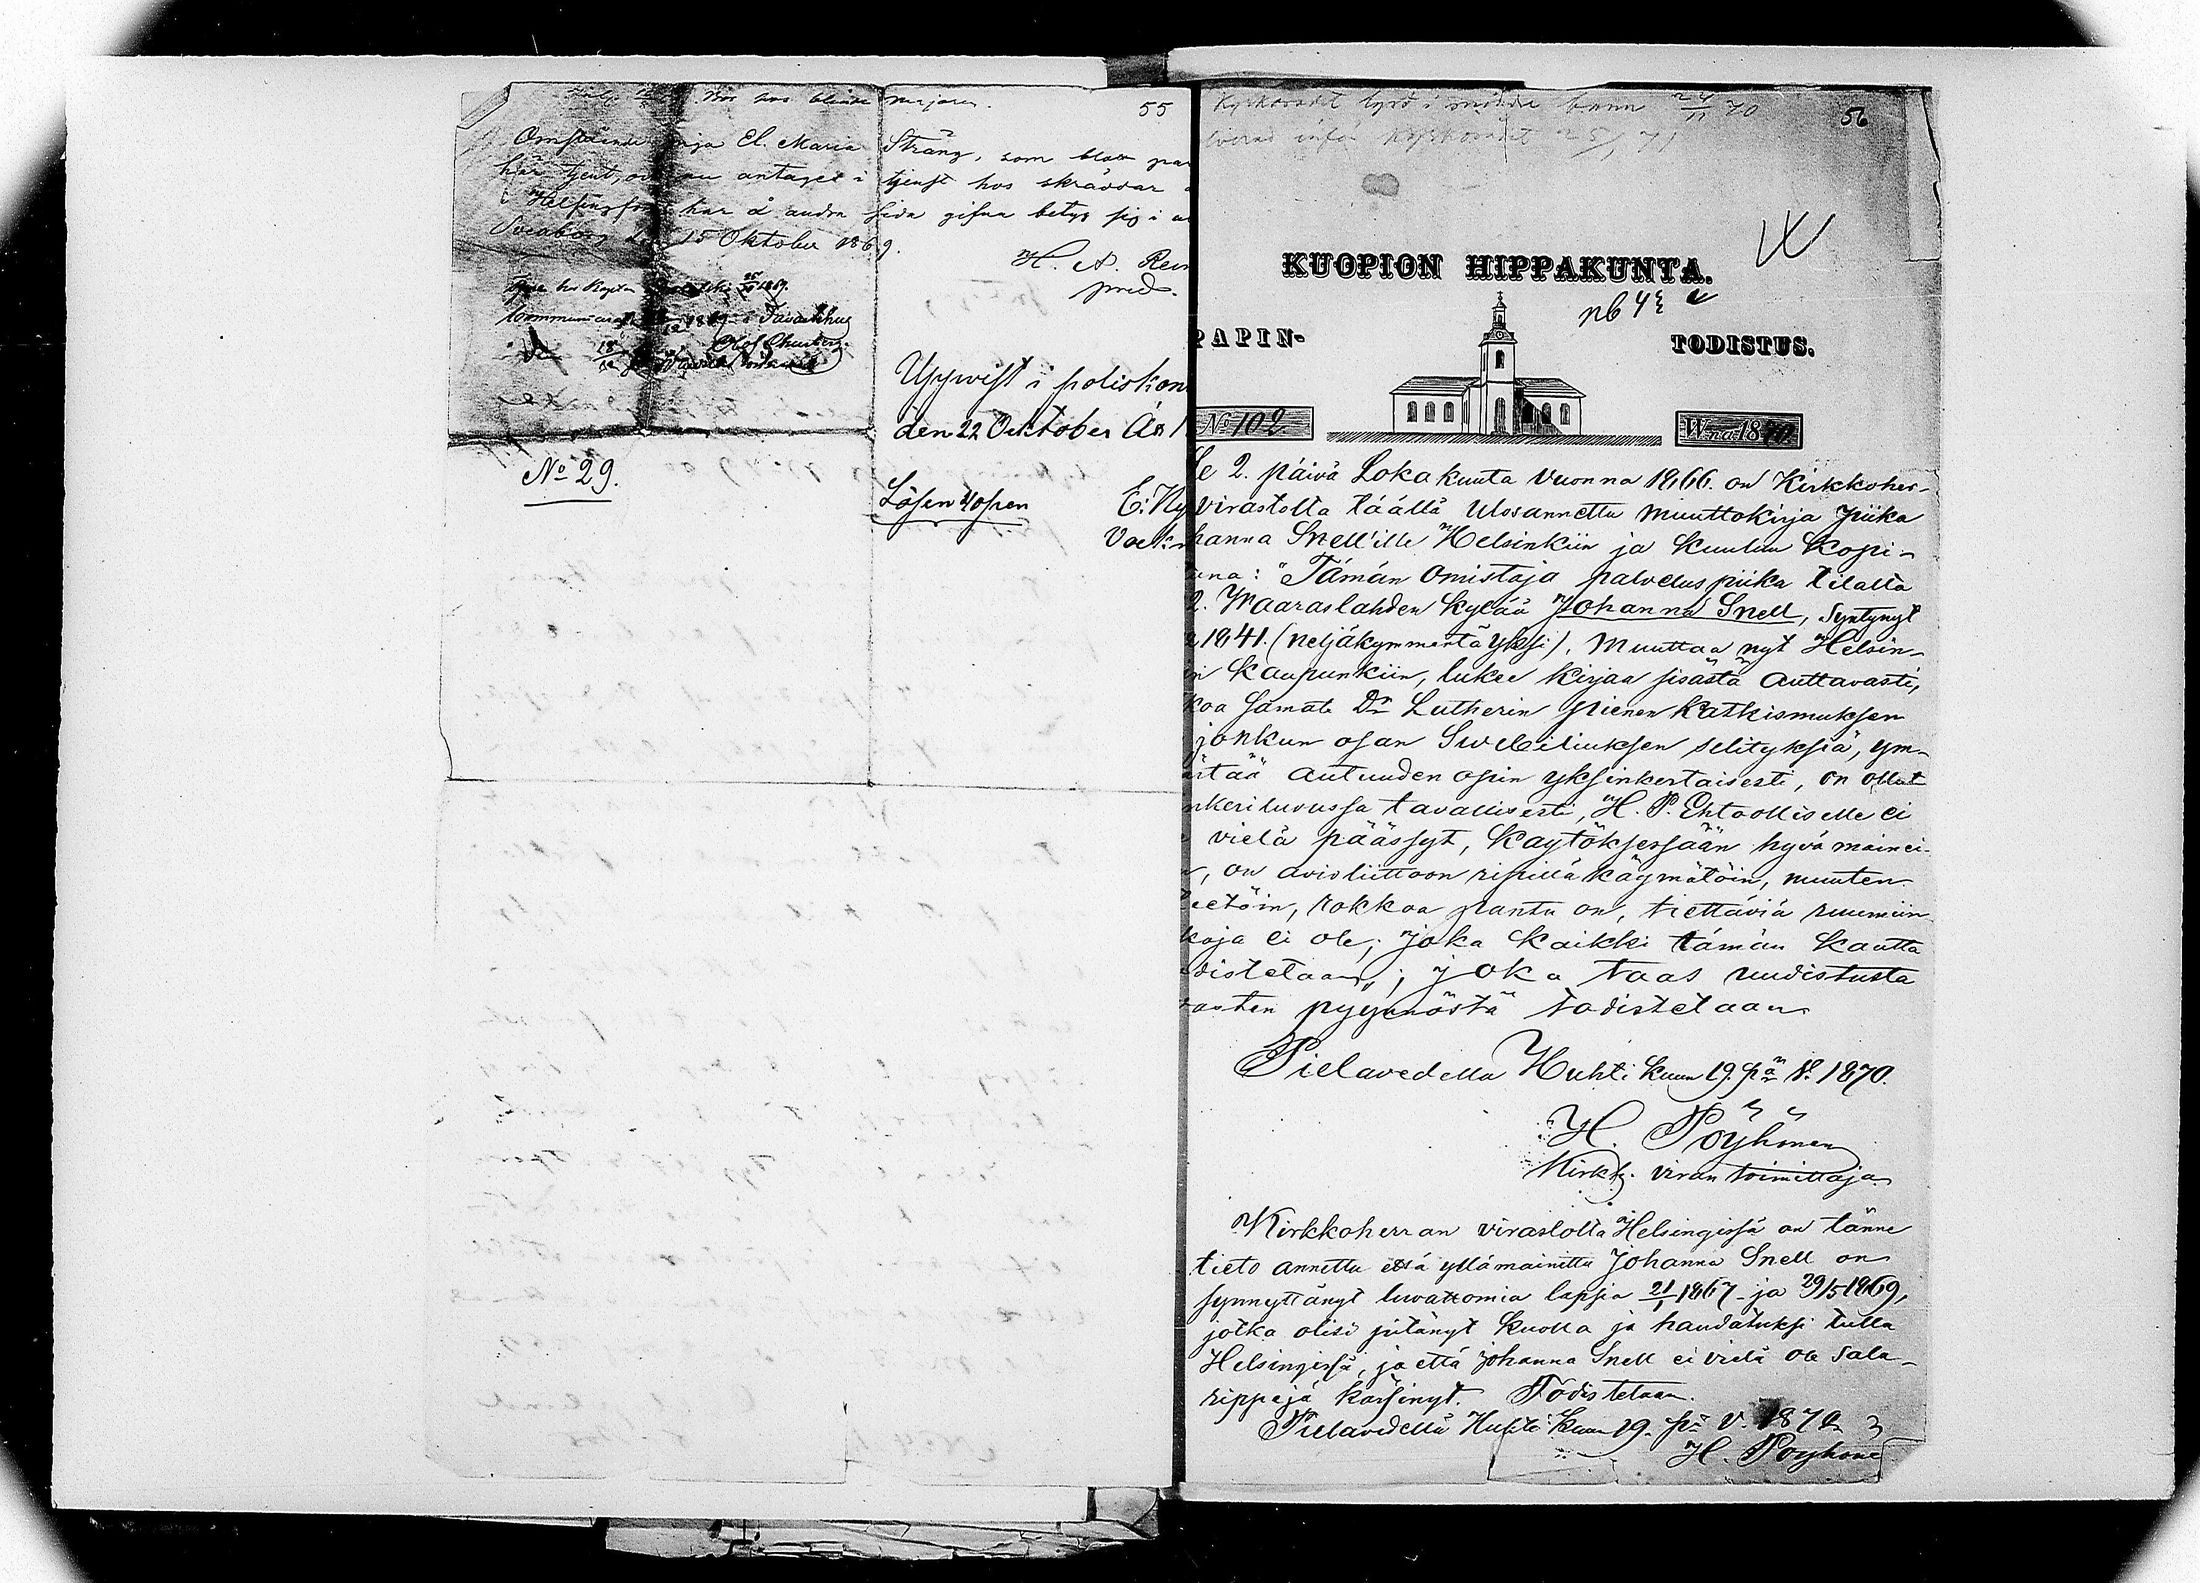 55
Omstående piga El. Maria Sträng, som
här tjent, antagit i tjenst hos skräddar
Helsingfors har å andra sida gifna betyg sig i
Sveaborg 15 Oktober 1869.
H. A.
pred.
Uppvist i poliskon
den 22 Oktober År 1
No 29.
Lösen 40 pen
E: Ny
56
Kyrkorådet
KUOPION HIPPAKUNTA.
PAPIN- TODISTUS.
No 102
Wna 1870
le 2. päivä Lokakuuta Vuonna 1866. on Kirkkoher-
virastolta täällä Ulosannettu muuttokirja piika
hanna Snell'ille Helsinkiin ja kuuluu Kopi-
na: "Tämän Omistaja palveluspiika tilalta
2. Waaraslahden kylää Johanna Snell, syntynyt
1841. (neljäkymmentä yksi), Muuttaa nyt Helsin-
in Kaupunkiin, lukee kirjaa sisästä auttavasti,
koa Samate Dr Lutherin pienen katkismuksen
jonkun osan Swebiliuksen selityksiä, ym-
ärtää autuuden opin yksinkertaisesti, on ollut
nkeriluvussa tavallisesti, H. P. Ehtoolliselle ei
vielä päässyt, Kaytöksessään hyvä mainei-
, on avioliittoon ripillä käymätöin, muuten
eetöin, rokkoa pantu on, tiettäviä ruumiin
koja ei ole; joka kaikki tämän kautta
distetaan"; joka taas uudistusta
vasten pyynnöstä todistetaan
Pielavedellä Huhti kuun 19. pä V. 1870.
H. Pöyhönen
Kirkh. viran toimittaja
Kirkkoherran virastolta Helsingissä on tänne
tieto annettu että yllämainittu Johanna Snell on
synnyttänyt luvattomia lapsia 21/1 1867 ja 29/5 1869,
jotka olisi jätänyt kuolla ja haudatuksi tulla
Helsingissä, ja että Johanna Snell ei vielä ole sala-
rippejä kärsinyt. Todistetaan.
Pielavedellä Huhti Kuun 19. pä V. 1870
H. Pöyhöne